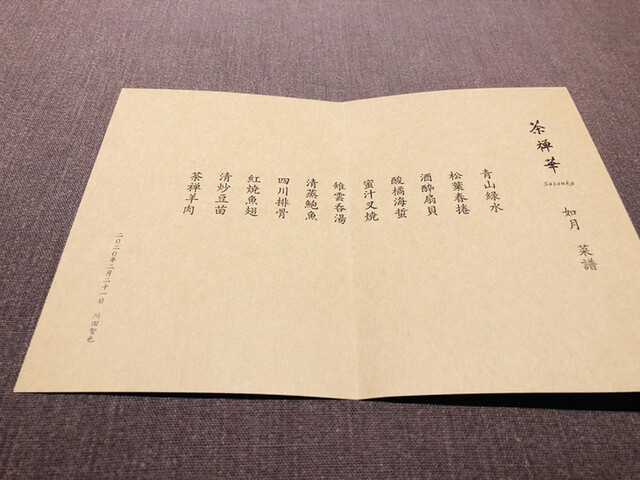 茶禅華
Sazenka
如月 菜譜
青山緑水
松葉春捲
酒酔扇貝
酸橘海蜇
蜜汁叉焼
雉雲呑湯
清蒸鮑魚
四川排骨
紅焼魚翅
清炒豆苗
茶禅羊肉
二〇二〇年二月二十一日 川田智也